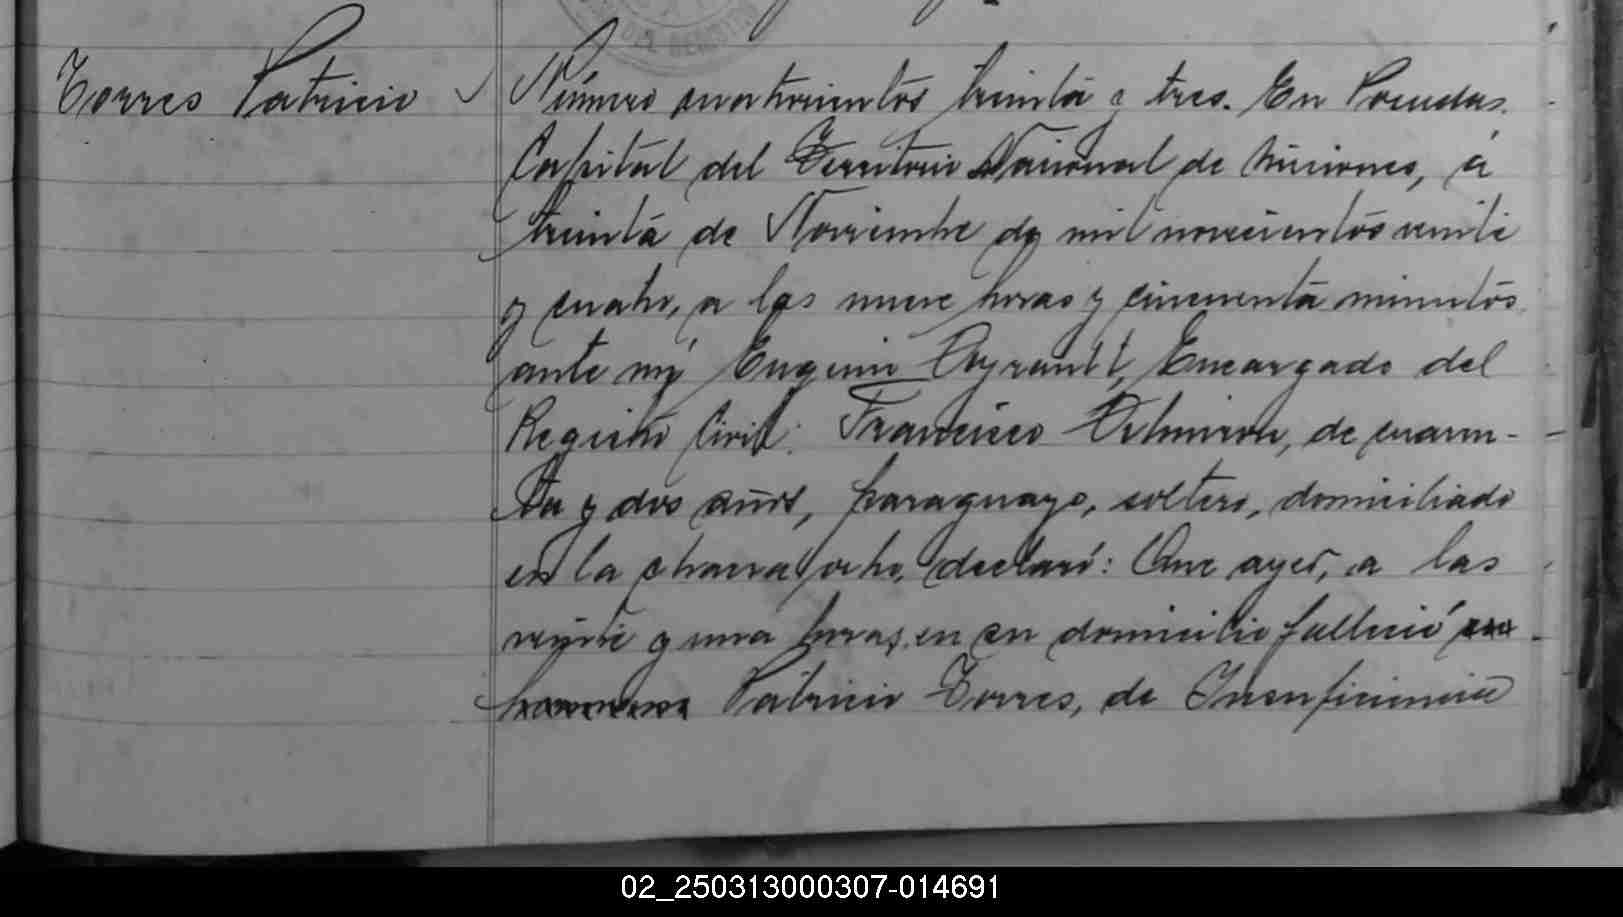 DEL
Torres Patricio
Número cuatrocientos treinta y tres. En Posadas.
Capital del Territorio Nacional de Misiones, á
treinta de Noviembre de mil novecientos veinte
y cuatro, a las nueve horas y cincuenta minutos
ante mí Eugenio Ayrault, Encargado del
Registro Civil: Francisco Almiron, de cuaren-
ta y dos años, paraguayo, soltero, domiciliado
en la chacra ocho, declaró: Que ayer, a las
veinte y una horas, en su domicilio falleció su
Patricio Torres, de Insuficiencia
02_250313000307-014691